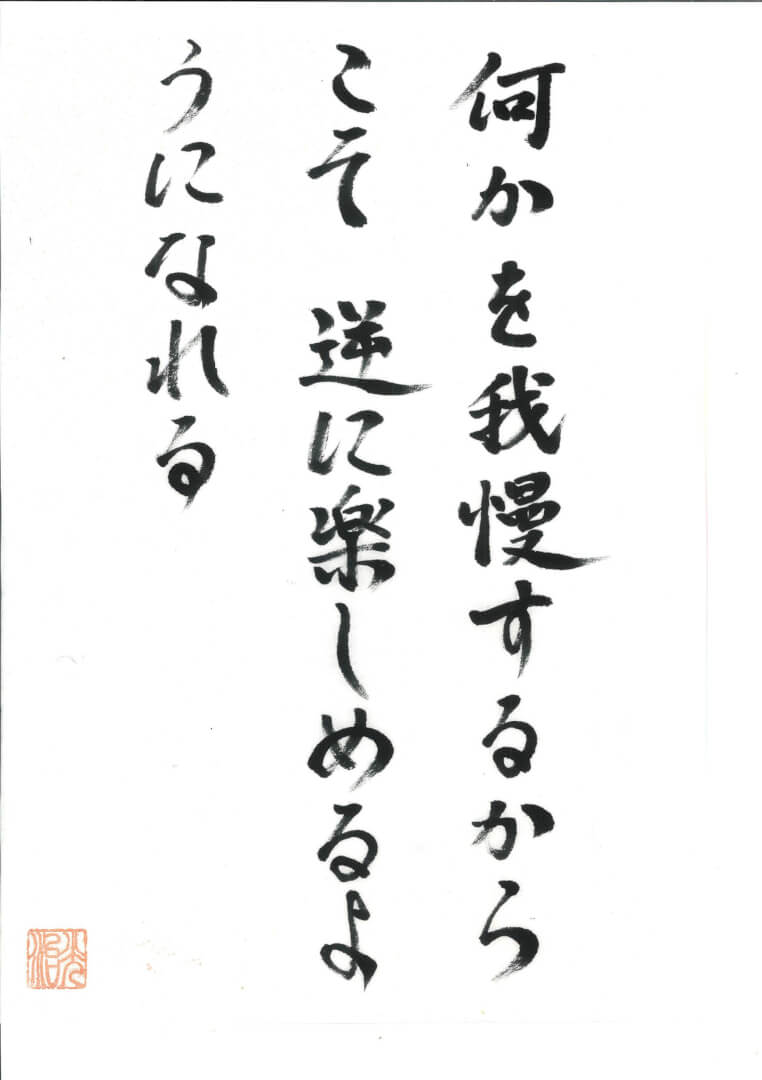 何かを我慢するから
こそ 逆に楽しめるよ
うになれる